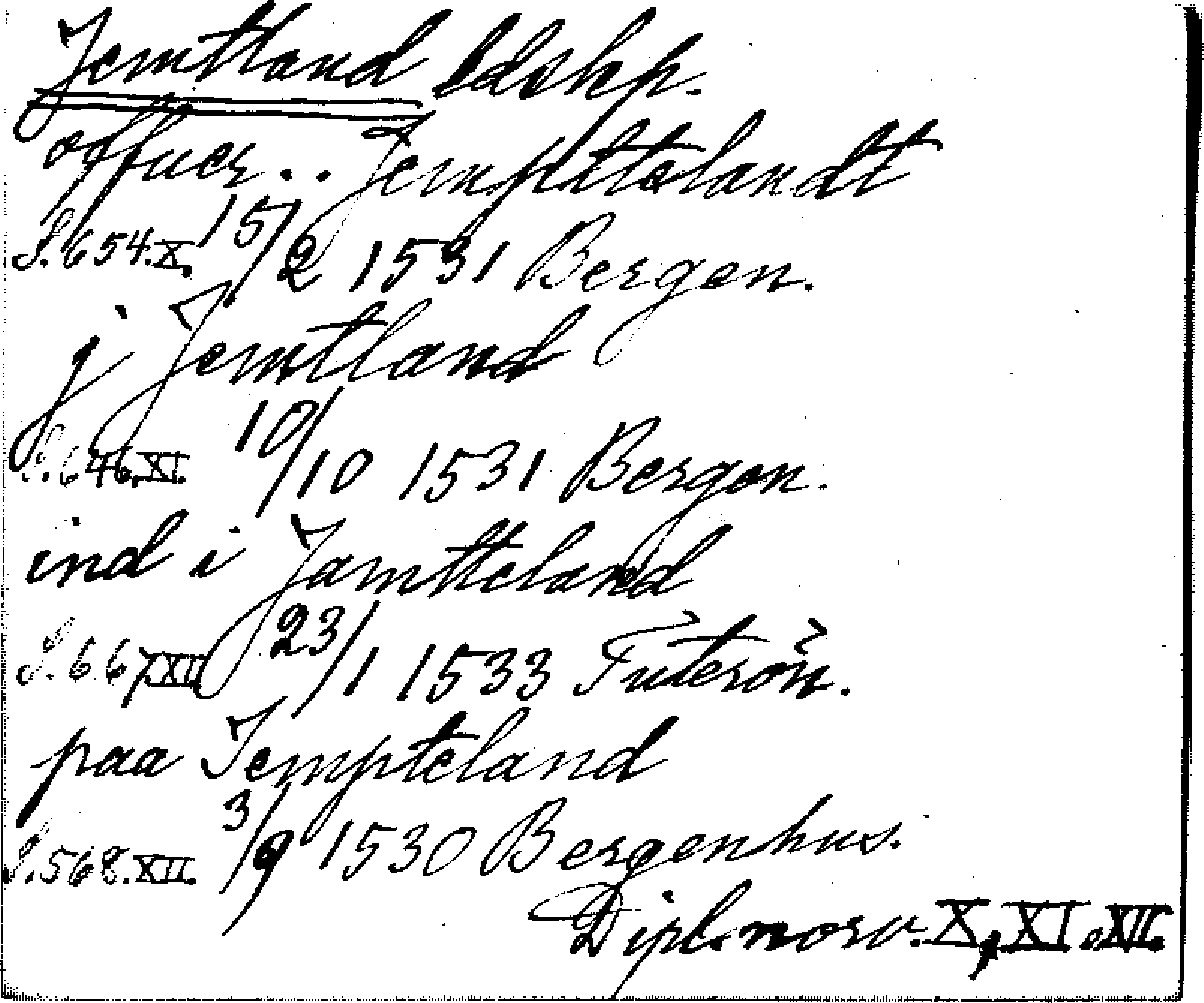 Jemtland ldskp.
offuer.. Jempttelandt
S.654.X. 15/2 1531 Bergen.
j Jemtland
S.646.XI. 10/10 1531 Bergen.
ind i Jamtteland
S.667.XII 23/1 1533 Tuterøn.
paa Jempteland
S.568.XII. 3/9 1530 Bergenhus.
Dipl. norv. X, XI. XII.